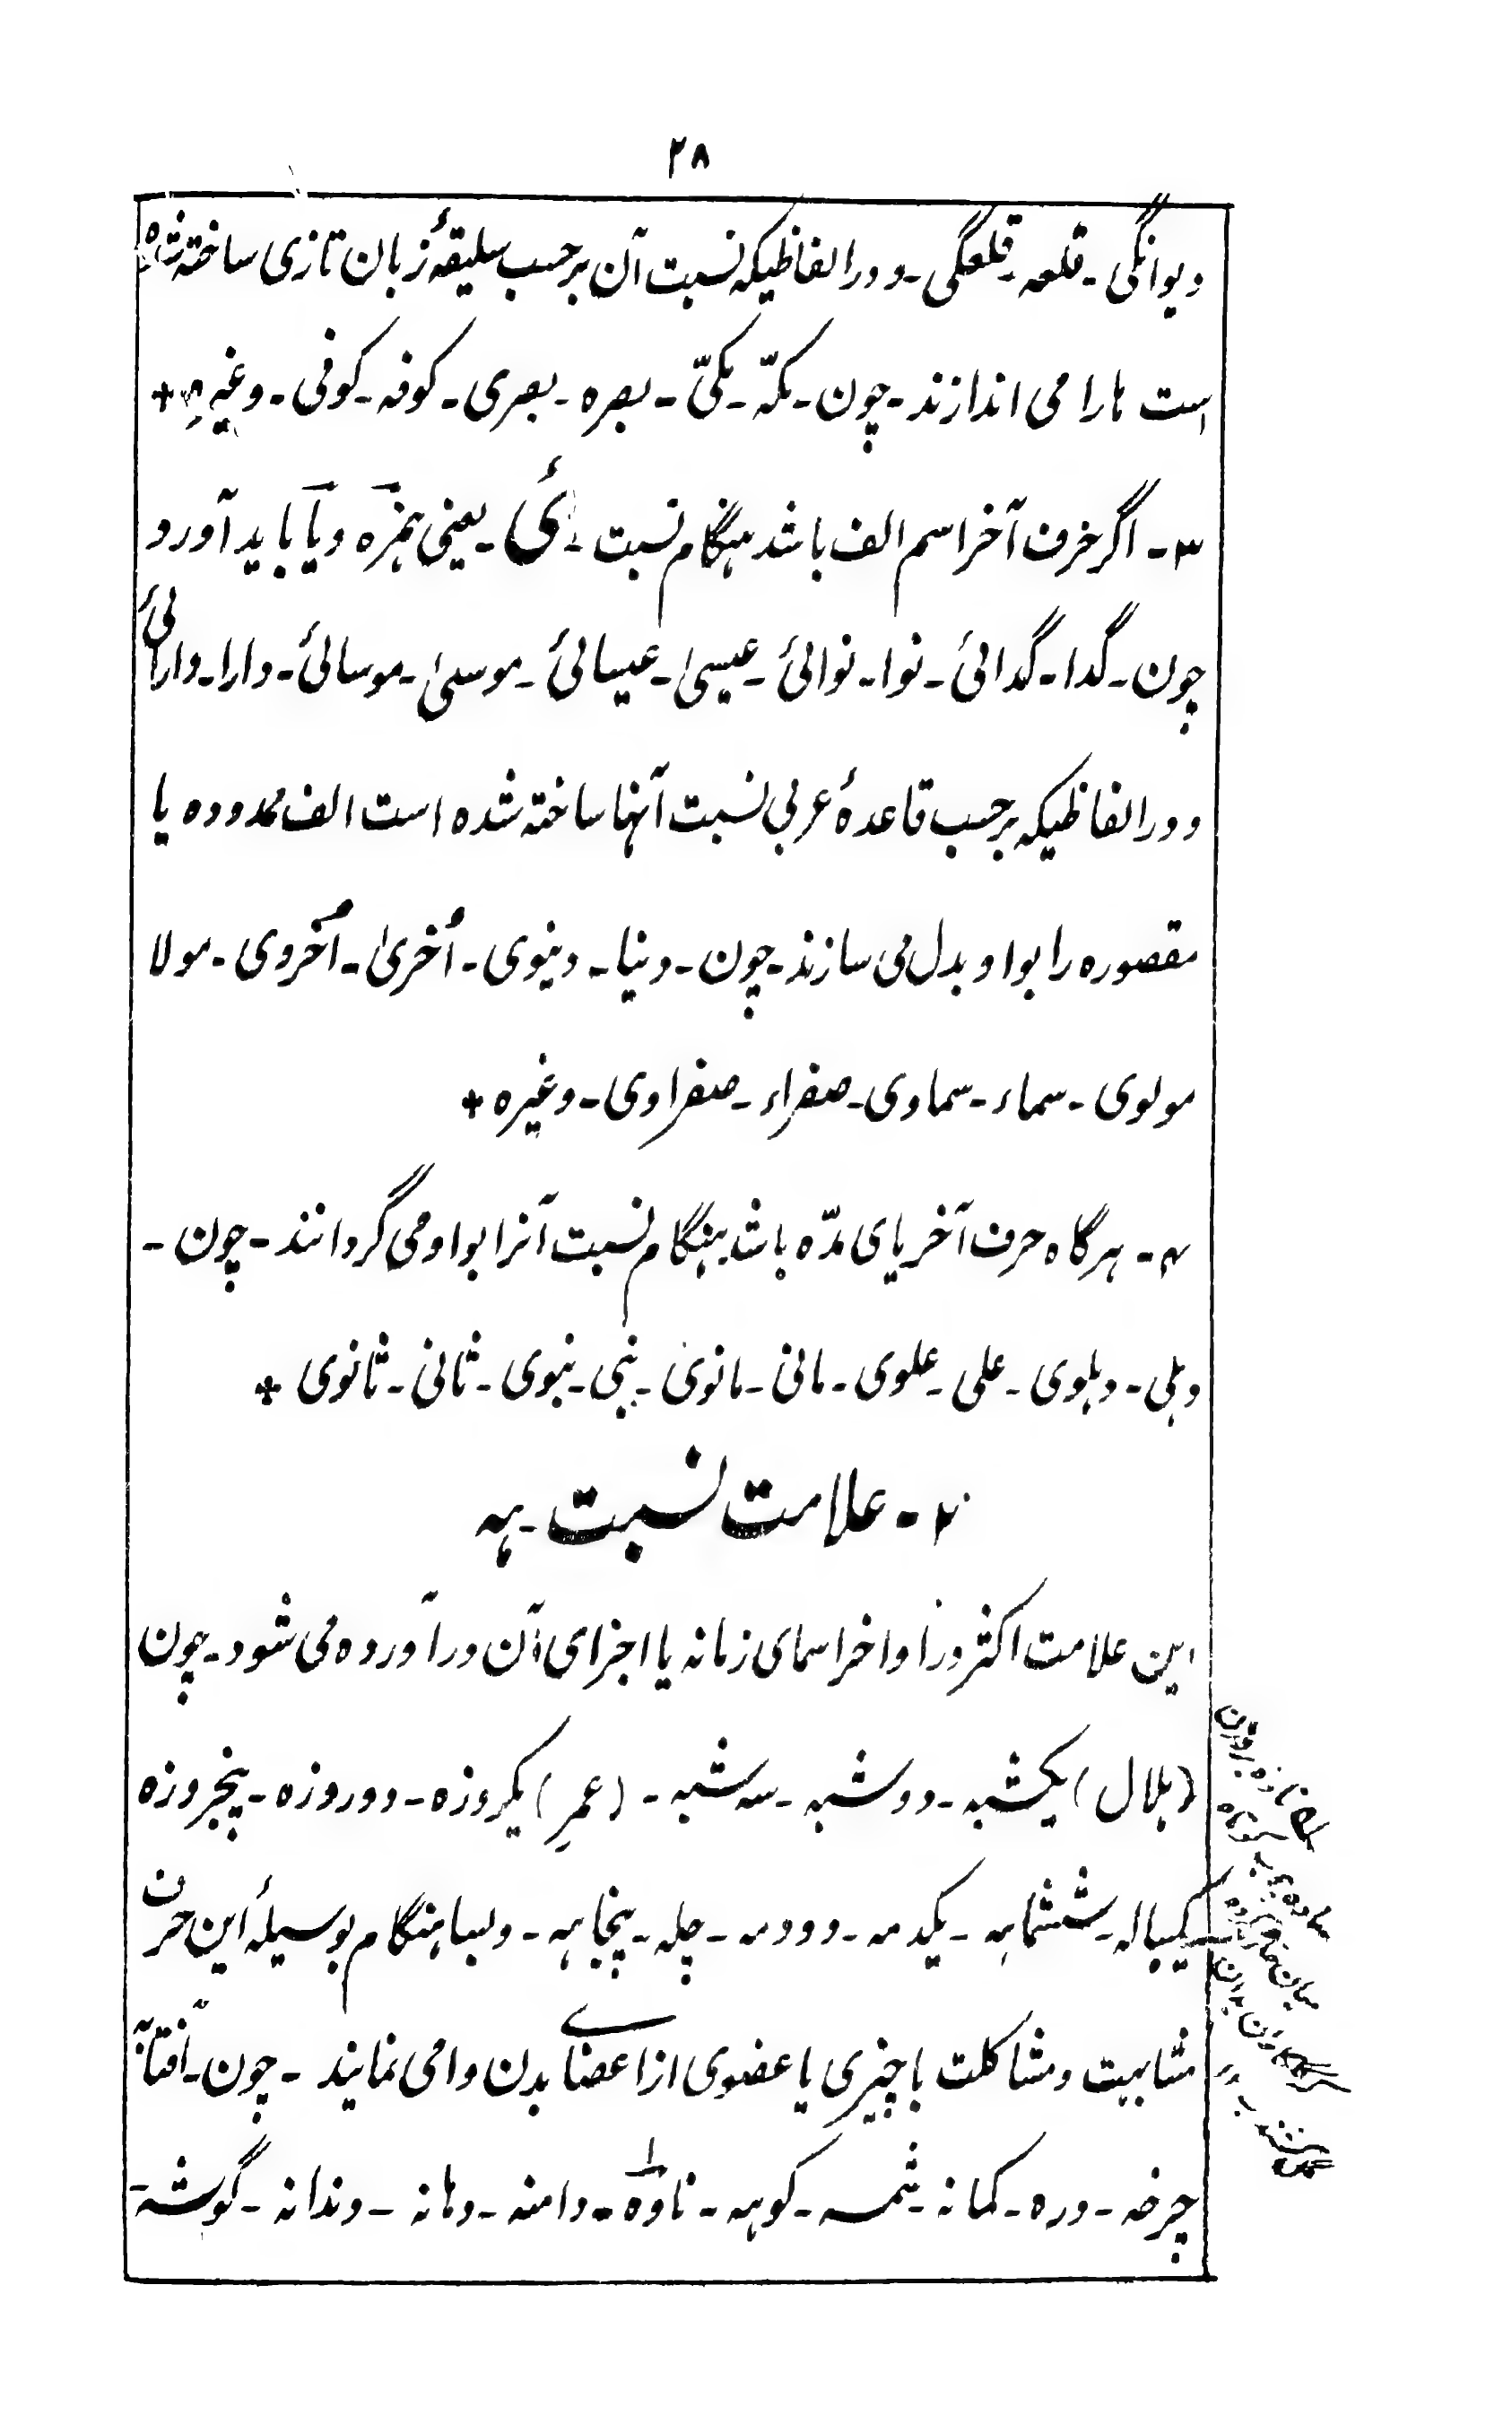 ۲۸
دیوانگی - قلعه - قلعگی - و در الفاظیکه نسبت آن برحسب سلیقهٔ زبان تازی ساخته شده
است ها را می اندازند - چون - مکّه - مکیّ - بصره - بصری - کوفه - کوفی - وغیره +
۳ - اگر حرف آخر اسم الف باشد هنگام نسبت - ئ - یعنی همزه و یا باید آورد
چون - گدا - گدائی - نوا - نوائی - عیسیٰ - عیسائی - موسیٰ - موسائی - دارا - دارائی
و در الفاظیکه برحسب قاعدهٔ عربی نسبت آنها ساخته شده است الف ممدوده یا
مقصوره را بواو بدل می سازند - چون - دنیا - دینوی - اُخریٰ - اُخروی - مولا
مولوی - سماء - سماوی - صفراء - صفراوی - وغیره +
۴ - هرگاه حرف آخر یای مدّه باشد بهنگام نسبت آنرا بواو می گردانند - چون -
دہلی - دہلوی - علی - علوی - مانی - مانوی - نبی - نبوی - ثانی - ثانوی +
۲ - علامت نسبت - ہہ
این علامت اکثر در اواخر اسمای زمانه یا اجزای آن در آورده می شود - چون
(ہلال) یکشبه - دو شبه - سه شبه - (عمرِ) یکروزه - دو روزه - پنجروزه
یکساله - ششماہه - یکدمه - دو دمه - چله - پنجاہه - و بسا هنگام بوسیلهٔ این حرف
مشابہت و مشاکلت با چیزی یا عضوی از اعضاے بدن وا می نمایند - چون - آفتابه
چرخه - دره - کمانه - شمسه - کوہه - ناوه - دامنه - دہانه - دندانه - گوشه